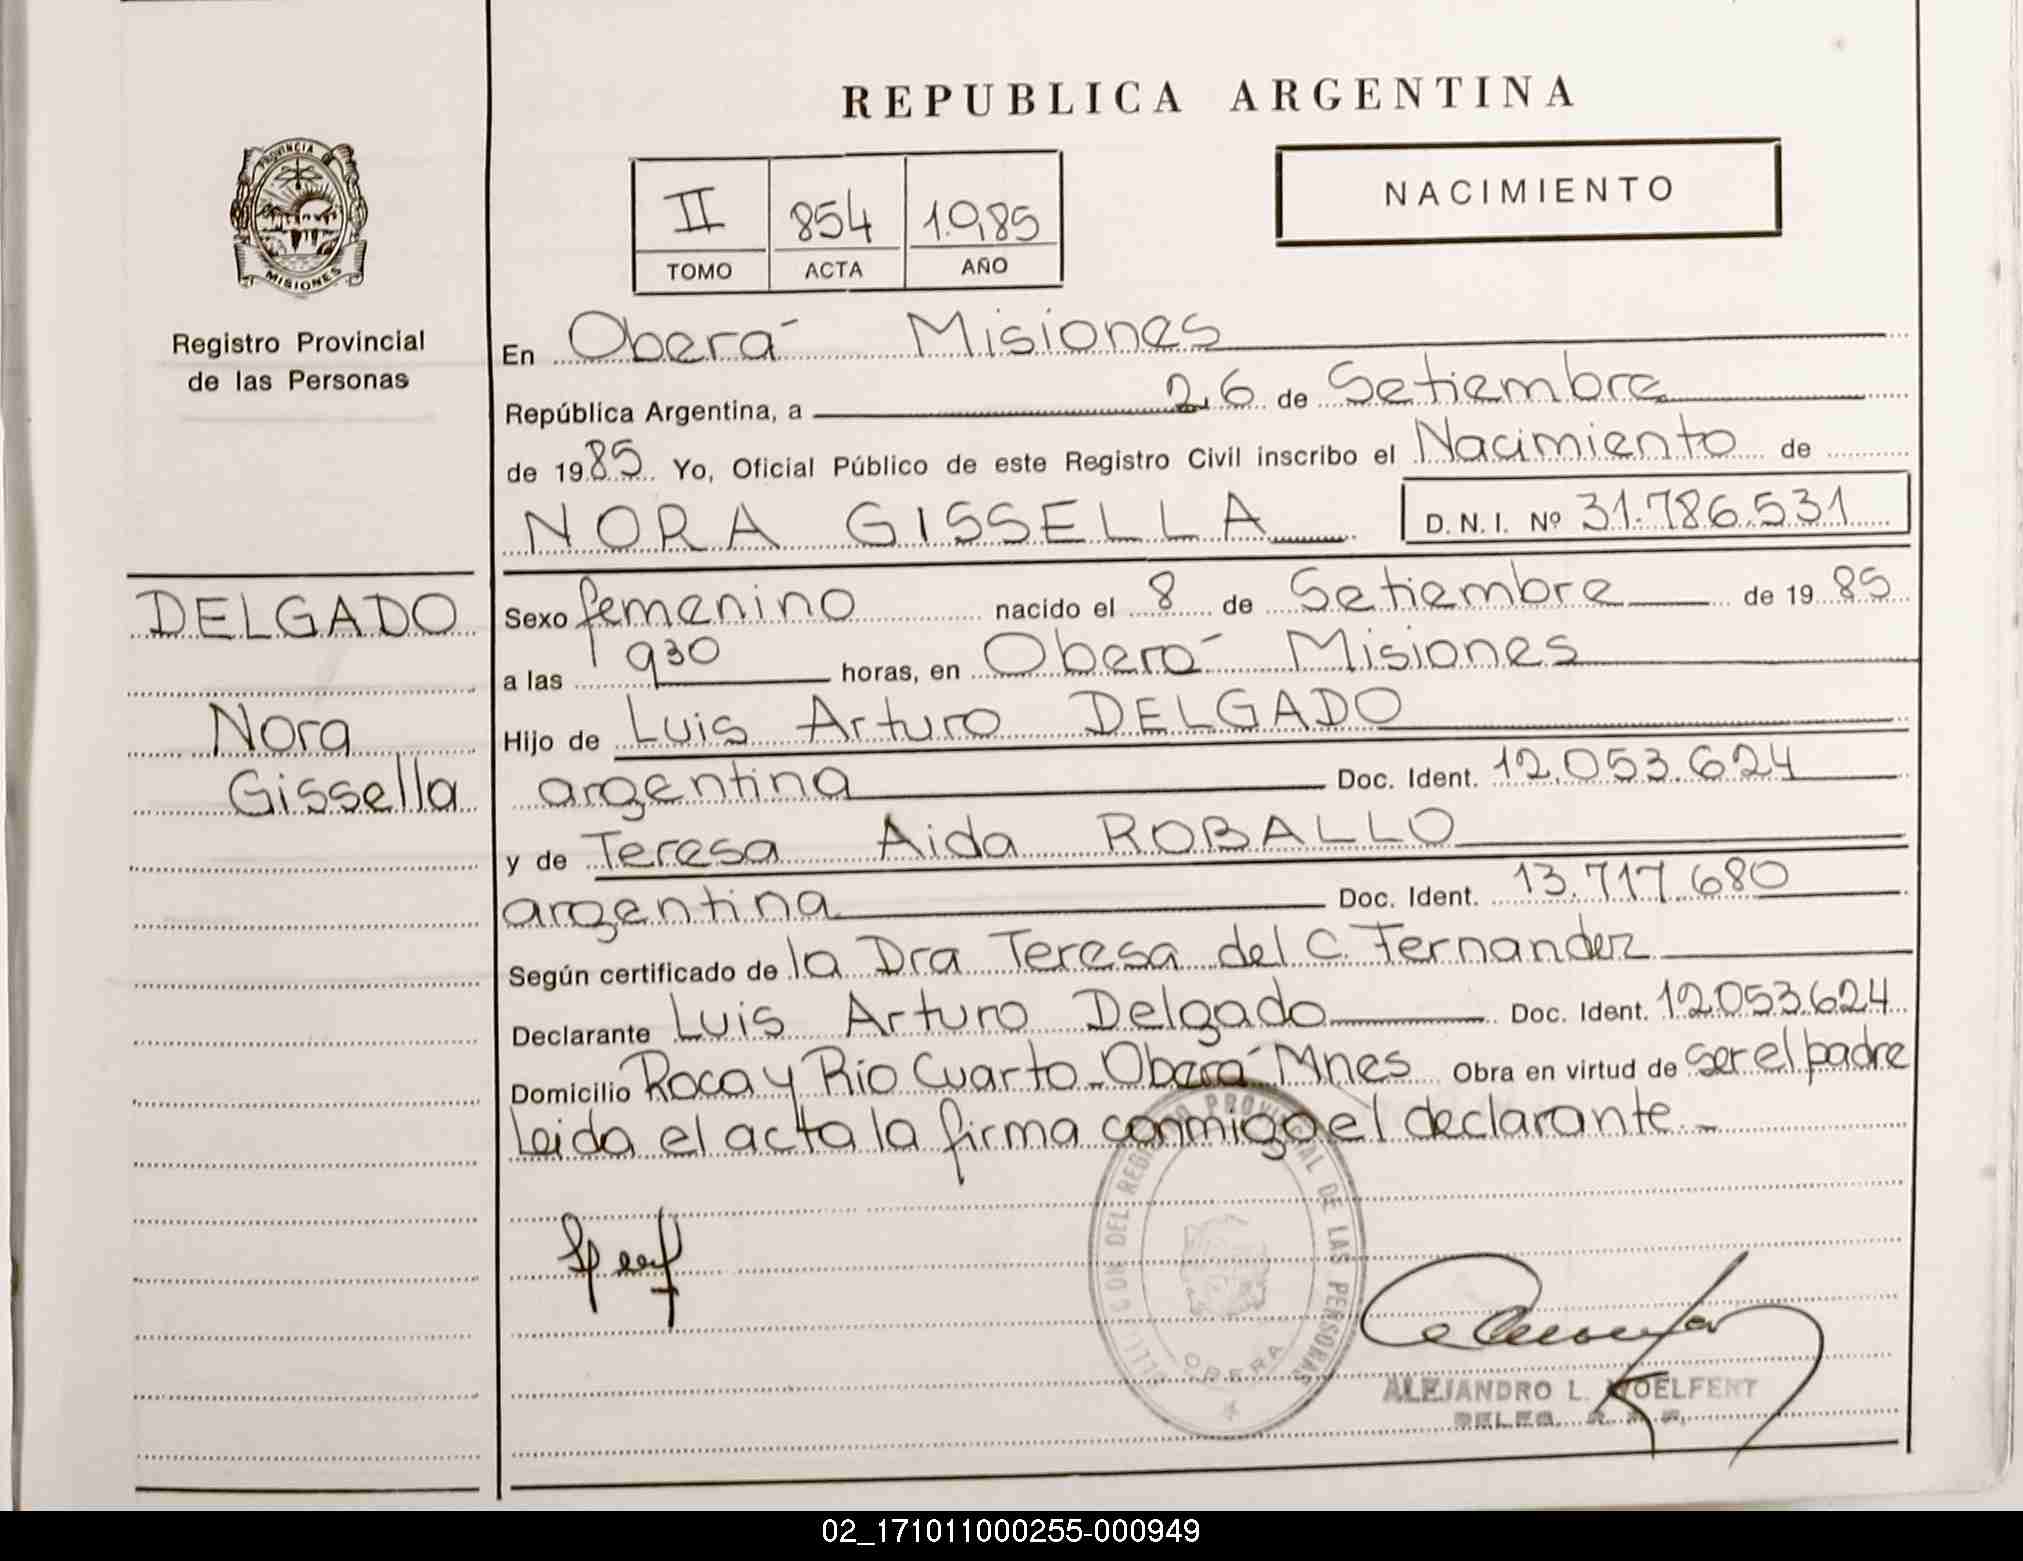 REPUBLICA ARGENTINA
PROVINCIA
MISIONES
Registro Provincial
de las Personas
II 854 1.985
TOMO ACTA AÑO
NACIMIENTO
En Oberá Misiones
República Argentina, a 26 de Setiembre
de 1985 Yo, Oficial Público de este Registro Civil inscribo el Nacimiento de
NORA GISSELLA D.N.I. Nº 31.786.531
DELGADO
Nora
Gissella
Sexo femenino nacido el 8 de Setiembre de 1985
a las 930 horas, en Oberá Misiones
Hijo de Luis Arturo DELGADO
argentina Doc. Ident. 12.053.624
y de Teresa Aida ROBALLO
argentina Doc. Ident. 13.717.680
Según certificado de la Dra Teresa del C. Fernandez
Declarante Luis Arturo Delgado Doc. Ident. 12.053.624
Domicilio Roca y Rio Cuarto - Oberá Mnes Obra en virtud de ser el padre
Leida el acta la firma conmigo el declarante. -
DEL REGISTRO PROVINCIAL DE LAS PERSONAS
OBERA
ALEJANDRO L. WOELFERT
02_171011000255-000949